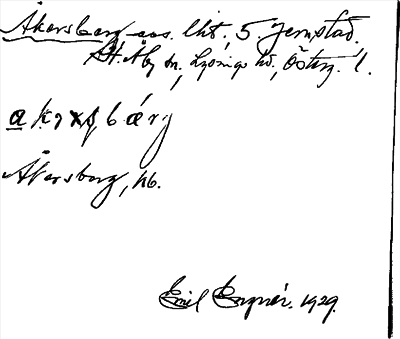 Åkersberg aos. lht, 5 Jernstad.
St. Åby sn, Lysings hd, Österg. l.
a k ə x ʂ b ä r g
Åkersberg, kb.
Emil Engnér. 1929.